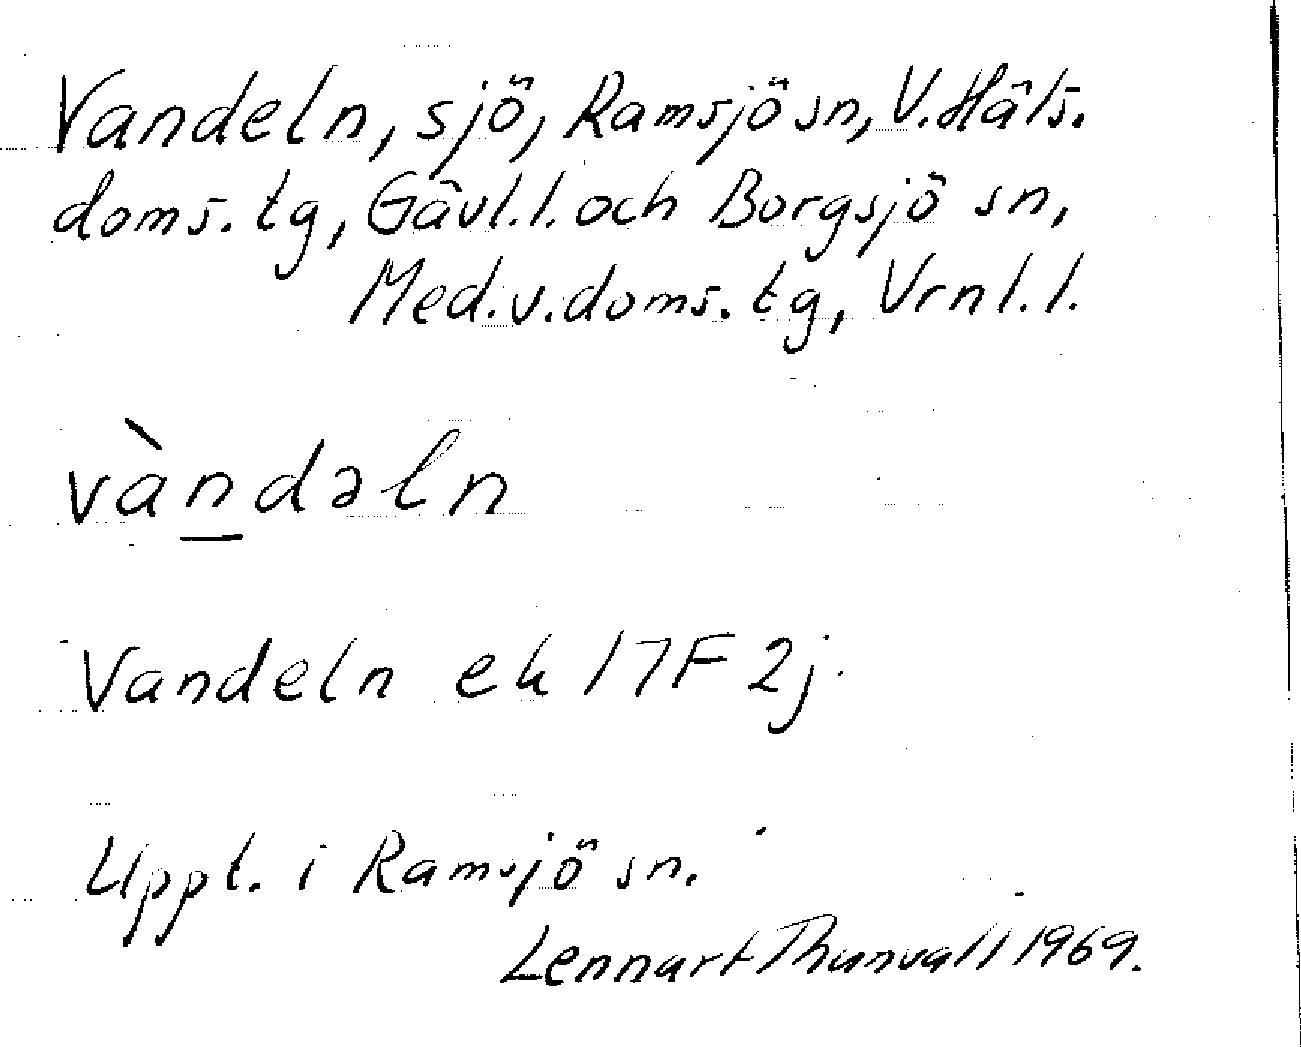 Vandeln, sjö, Ramsjö sn, V. Häls.
doms. tg, Gävl. l. och Borgsjö sn,
Med. v. doms. tg, Vrnl. l.
vàn̲dəln
Vandeln ek 17F 2j
Uppt. i Ramsjö sn.
Lennart Thunvall 1969.